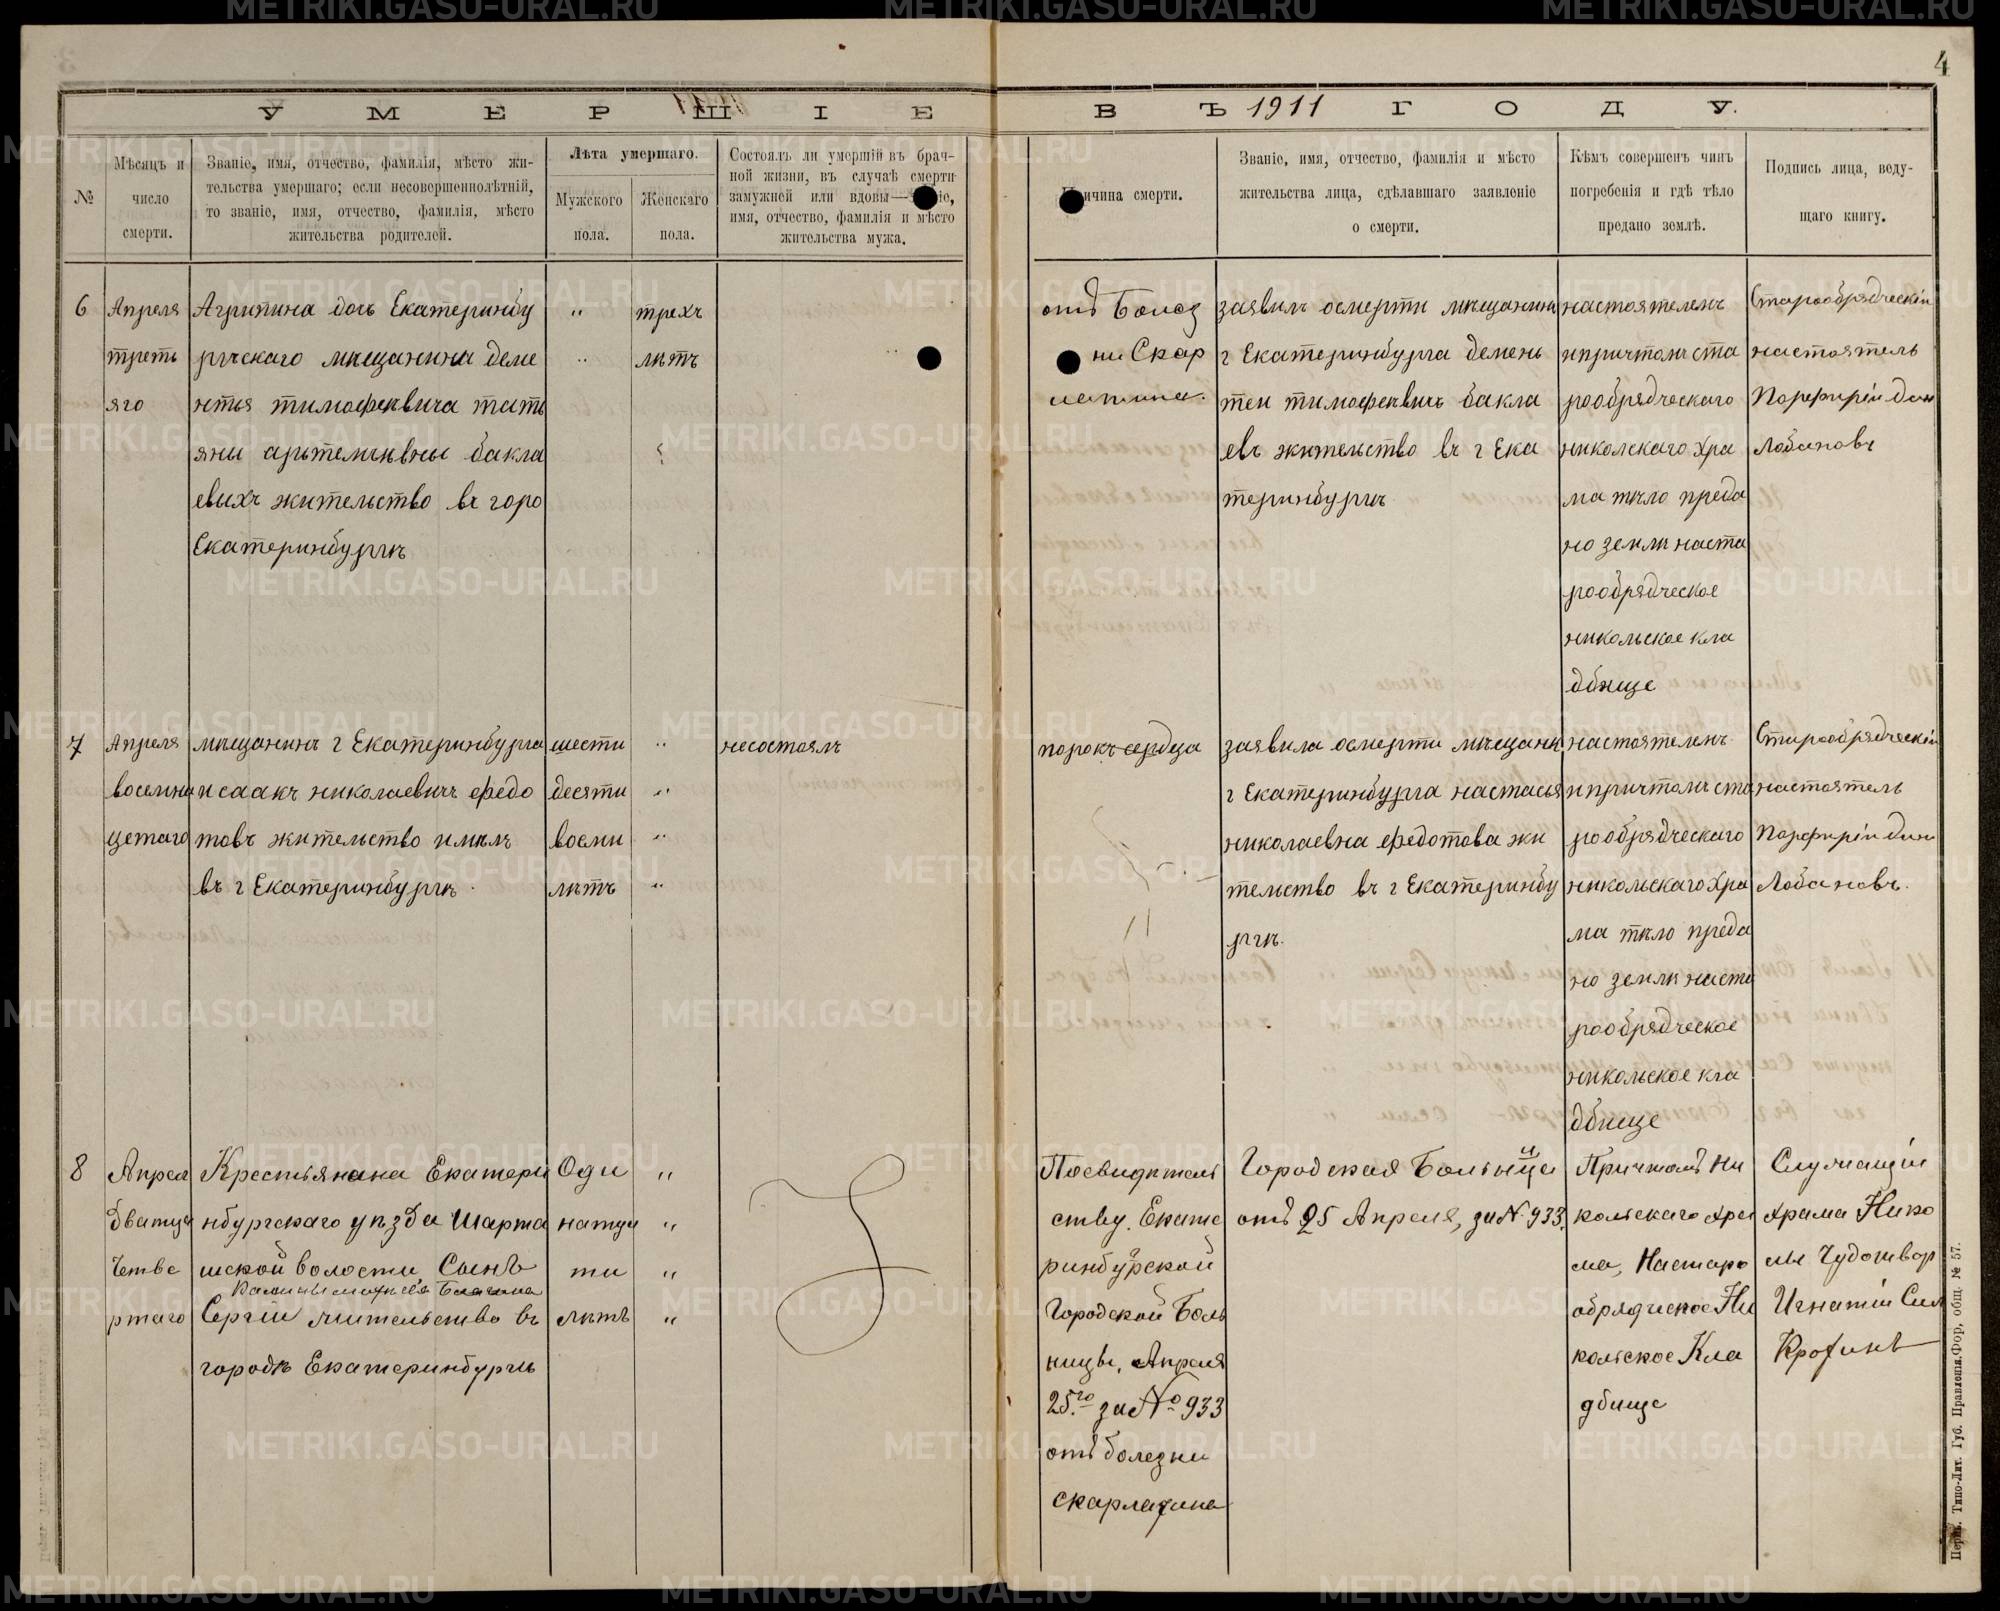 4
УМЕРШІЕ ВЪ 1911 ГОДУ.
№
Мѣсяцъ и
число
смерти.
Званіе, имя, отчество, фамилія, мѣсто жи-
тельства умершаго; если несовершеннолѣтній,
то званіе, имя, отчество, фамилія, мѣсто
жительства родителей.
Лѣта умершаго.
Мужского
пола.
Женскаго
пола.
Состоялъ ли умершій въ брач-
ной жизни, въ случаѣ смерти
замужней или вдовы—
имя, отчество, фамилія и мѣсто
жительства мужа.
ичина смерти.
Званіе, имя, отчество, фамилія и мѣсто
жительства лица, сдѣлавшаго заявленіе
о смерти.
Кѣмъ совершенъ чинъ
погребенія и гдѣ тѣло
предано землѣ.
Подпись лица, веду-
щаго книгу.
6
Апреля
треть
яго
Агрипина дочь Екатеринбу
ргскаго мѣщанина деме
нтья тимофеевича тать
яни
бакла
евыхъ жительство въ горо
Екатеринбургѣ
"
"
трехъ
лѣтъ
отъ Болез
ни Скар
латина.
заявилъ осмерти мѣщанинъ
г Екатеринбурга демень
теи тимофеевичъ бакла
евъ жительство въ г Ека
теринбургѣ
настоятелемъ
ипричтомъ ста
рообрядческаго
николскаго хра
ма тѣло преда
но земли наста
рообрядческое
никольское кла
дбище
Старообрядческіи
настоятель
Порфиріи
Лобановъ
7
Апреля
восемна
цетаго
мѣщанинъ г Екатеринбурга
исаакъ николаевичъ федо
товъ жительство имѣлъ
въ г Екатеринбургѣ.
шести
десяти
восми
лѣтъ
"
"
"
"
несостоялъ
порокъ сердца
заявила осмерти мѣщанк
г Екатеринбурга настасья
николаевна федотова жи
тельство въ г Екатеринбу
ргѣ.
настоятелемъ
ипричтомъ ста
рообрядческаго
никольскаго хра
ма тѣло преда
но земли наста
рообрядческое
никольское кла
дбище
Старообрядческіи
настоятель
Порфиріи
Лобановъ.
8
Апрел
дватце
Четве
ртаго
Крестьянина Екатери
нбургскаго уѣзда Шарта
шской волости Сынъ
Сергіи жительство въ
городѣ Екатеринбургѣ
Оди
натца
ти
лѣтъ
"
"
"
"
Посвидѣтель
ству. Екате
ринбурской
Городской Боль
ницы, Апреля
25.го за № 933
отъ болезни
скарлатина
Городская Больница
отъ 25 Апреля, за № 933.
Причтомъ Ни
кольскаго хра
ма, Настаро
обрядческое Ни
кольское Кла
дбище
Служащіи
храма Нико
лы Чудотвор
Игнатіи
Пермь. Типо-Лит. Губ. Правленія. Фор, общ. № 57.